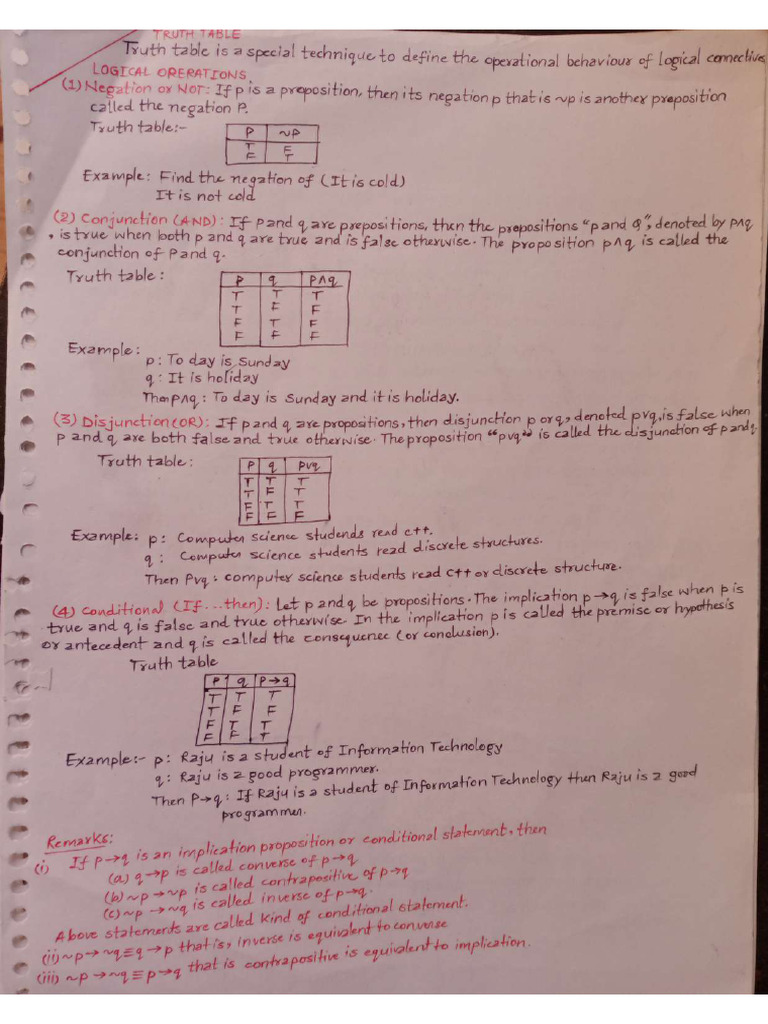 TRUTH TABLE
Truth table is a special technique to define the operational behaviour of logical connectives
LOGICAL OPERATIONS
(1) Negation or NOT: If p is a proposition, then its negation p that is ~p is another preposition
called the negation P.
Truth table:-
P ~P
T F
F T
Example: Find the negation of (It is cold)
It is not cold
(2) Conjunction (AND): If P and q are prepositions, then the prepositions "p and Q", denoted by p∧q
, is true when both p and q are true and is false otherwise. The proposition p∧q is called the
conjunction of P and q.
Truth table:
P q p∧q
T T T
T F F
F T F
F F F
Example:
p: To day is Sunday
q: It is holiday
Then p∧q: To day is Sunday and it is holiday.
(3) Disjunction (OR): If p and q are propositions, then disjunction p or q, denoted p∨q, is false when
p and q are both false and true otherwise. The proposition "p∨q" is called the disjunction of p and q.
Truth table:
P q p∨q
T T T
T F T
F T T
F F F
Example: p: Computer science students read c++.
q: Computer science students read discrete structures.
Then P∨q: computer science students read C++ or discrete structure.
(4) Conditional (If...then): Let p and q be propositions. The implication p→q is false when p is
true and q is false and true otherwise. In the implication p is called the premise or hypothesis
or antecedent and q is called the consequence (or conclusion).
Truth table
P q P→q
T T T
T F F
F T T
F F T
Example:- p: Raju is a student of Information Technology
q: Raju is a good programmer.
Then P→q: If Raju is a student of Information Technology then Raju is a good
programmer.
Remarks:
(i) If p→q is an implication proposition or conditional statement, then
(a) q→p is called converse of p→q
(b) ~p→~p is called contrapositive of p→q
(c) ~p→~q is called inverse of p→q.
Above statements are called kind of conditional statement.
(ii) ~p→~q≡q→p that is, inverse is equivalent to converse
(iii) ~p→~q≡p→q that is contrapositive is equivalent to implication.